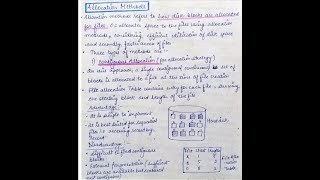 Allocation Methods
• Allocation methods refers to how disk blocks are allocated
for files. It allocates space to the files using allocation
methods, considering efficient utilization of disk space
and secondly, fast access of files
• Three types of methods are:-
1) Contiguous Allocation (pre allocation strategy)
• In this approach, a single contiguous set of
blocks is allocated to a file at the time of file creation
• File Allocation Table contains entry for each file, showing
the starting block and length of the file
Advantage:-
• It is simple to implement
• It is best suited for sequential
files
Disadvantage:-
• Difficult to find contiguous
blocks
• External fragmentation (sufficient
blocks are available but
not contiguous)
File Start Length
Table